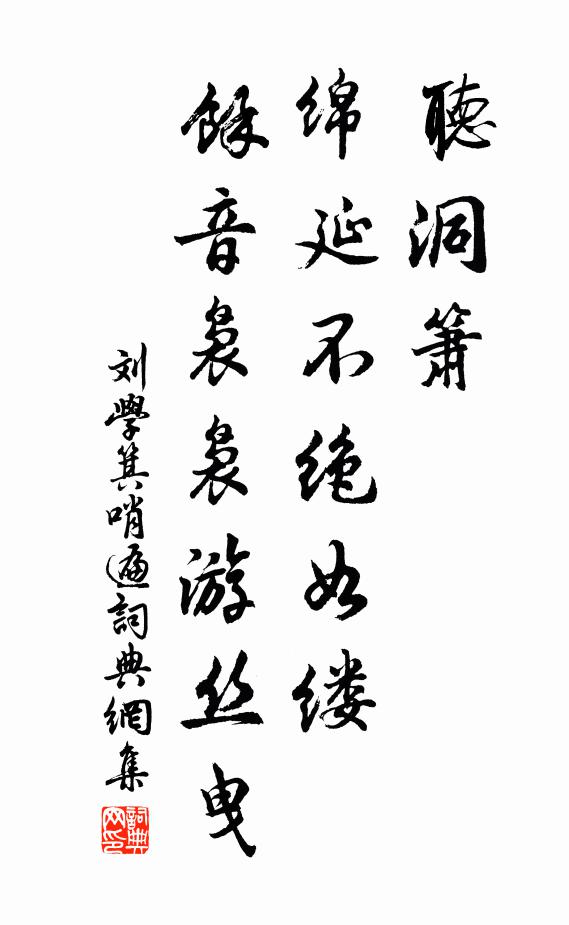 聽洞簫
綿延不絕如縷
餘音裊裊游丝曳
刘學箕哨遍詞典網集
詞典网印